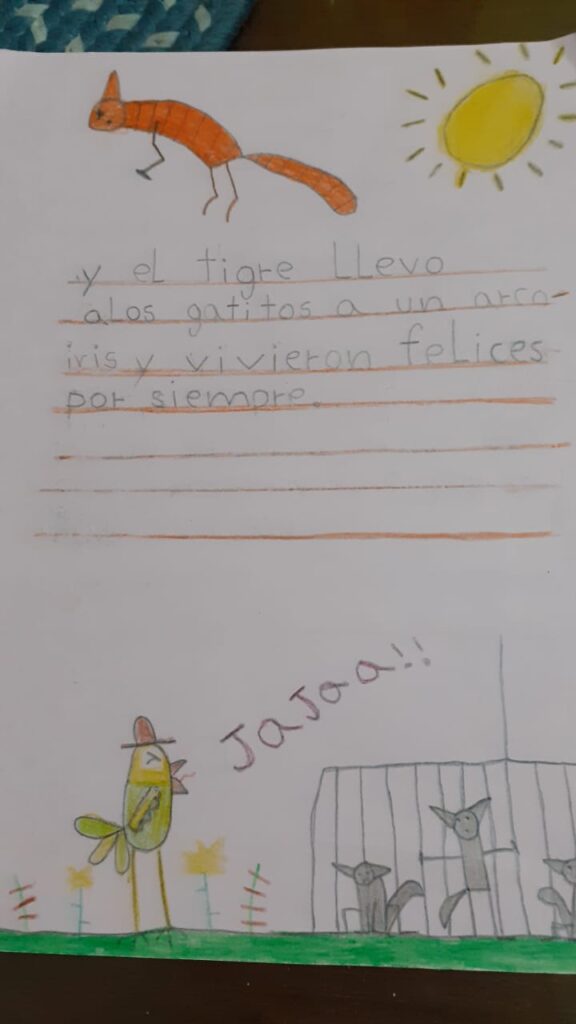 y el tigre LLevo
aLos gatitos a un arco-
iris y vivieron feLices
por siempre.
JaJaa!!